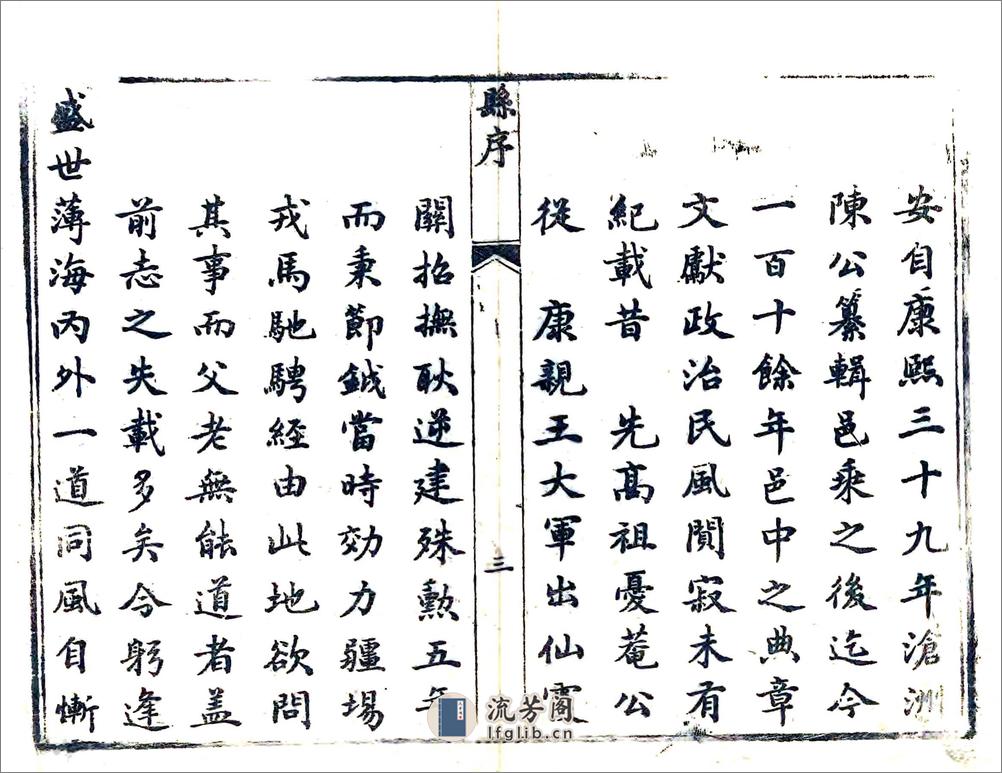 安自康熙三十九年滄洲
陳公纂輯邑乘之後迄今
一百十餘年邑中之典章
文獻政治民風闃寂未有
紀載昔　先高祖憂菴公
從　康親王大軍出仙霞
縣序
三
關招撫耿逆建殊勳五年
而秉節鉞當時効力疆場
戎馬馳騁経由此地欲問
其事而父老無能道者盖
前志之失載多矣今躬逢
盛世薄海內外一道同風自慚
流芳阁
lfglib.cn